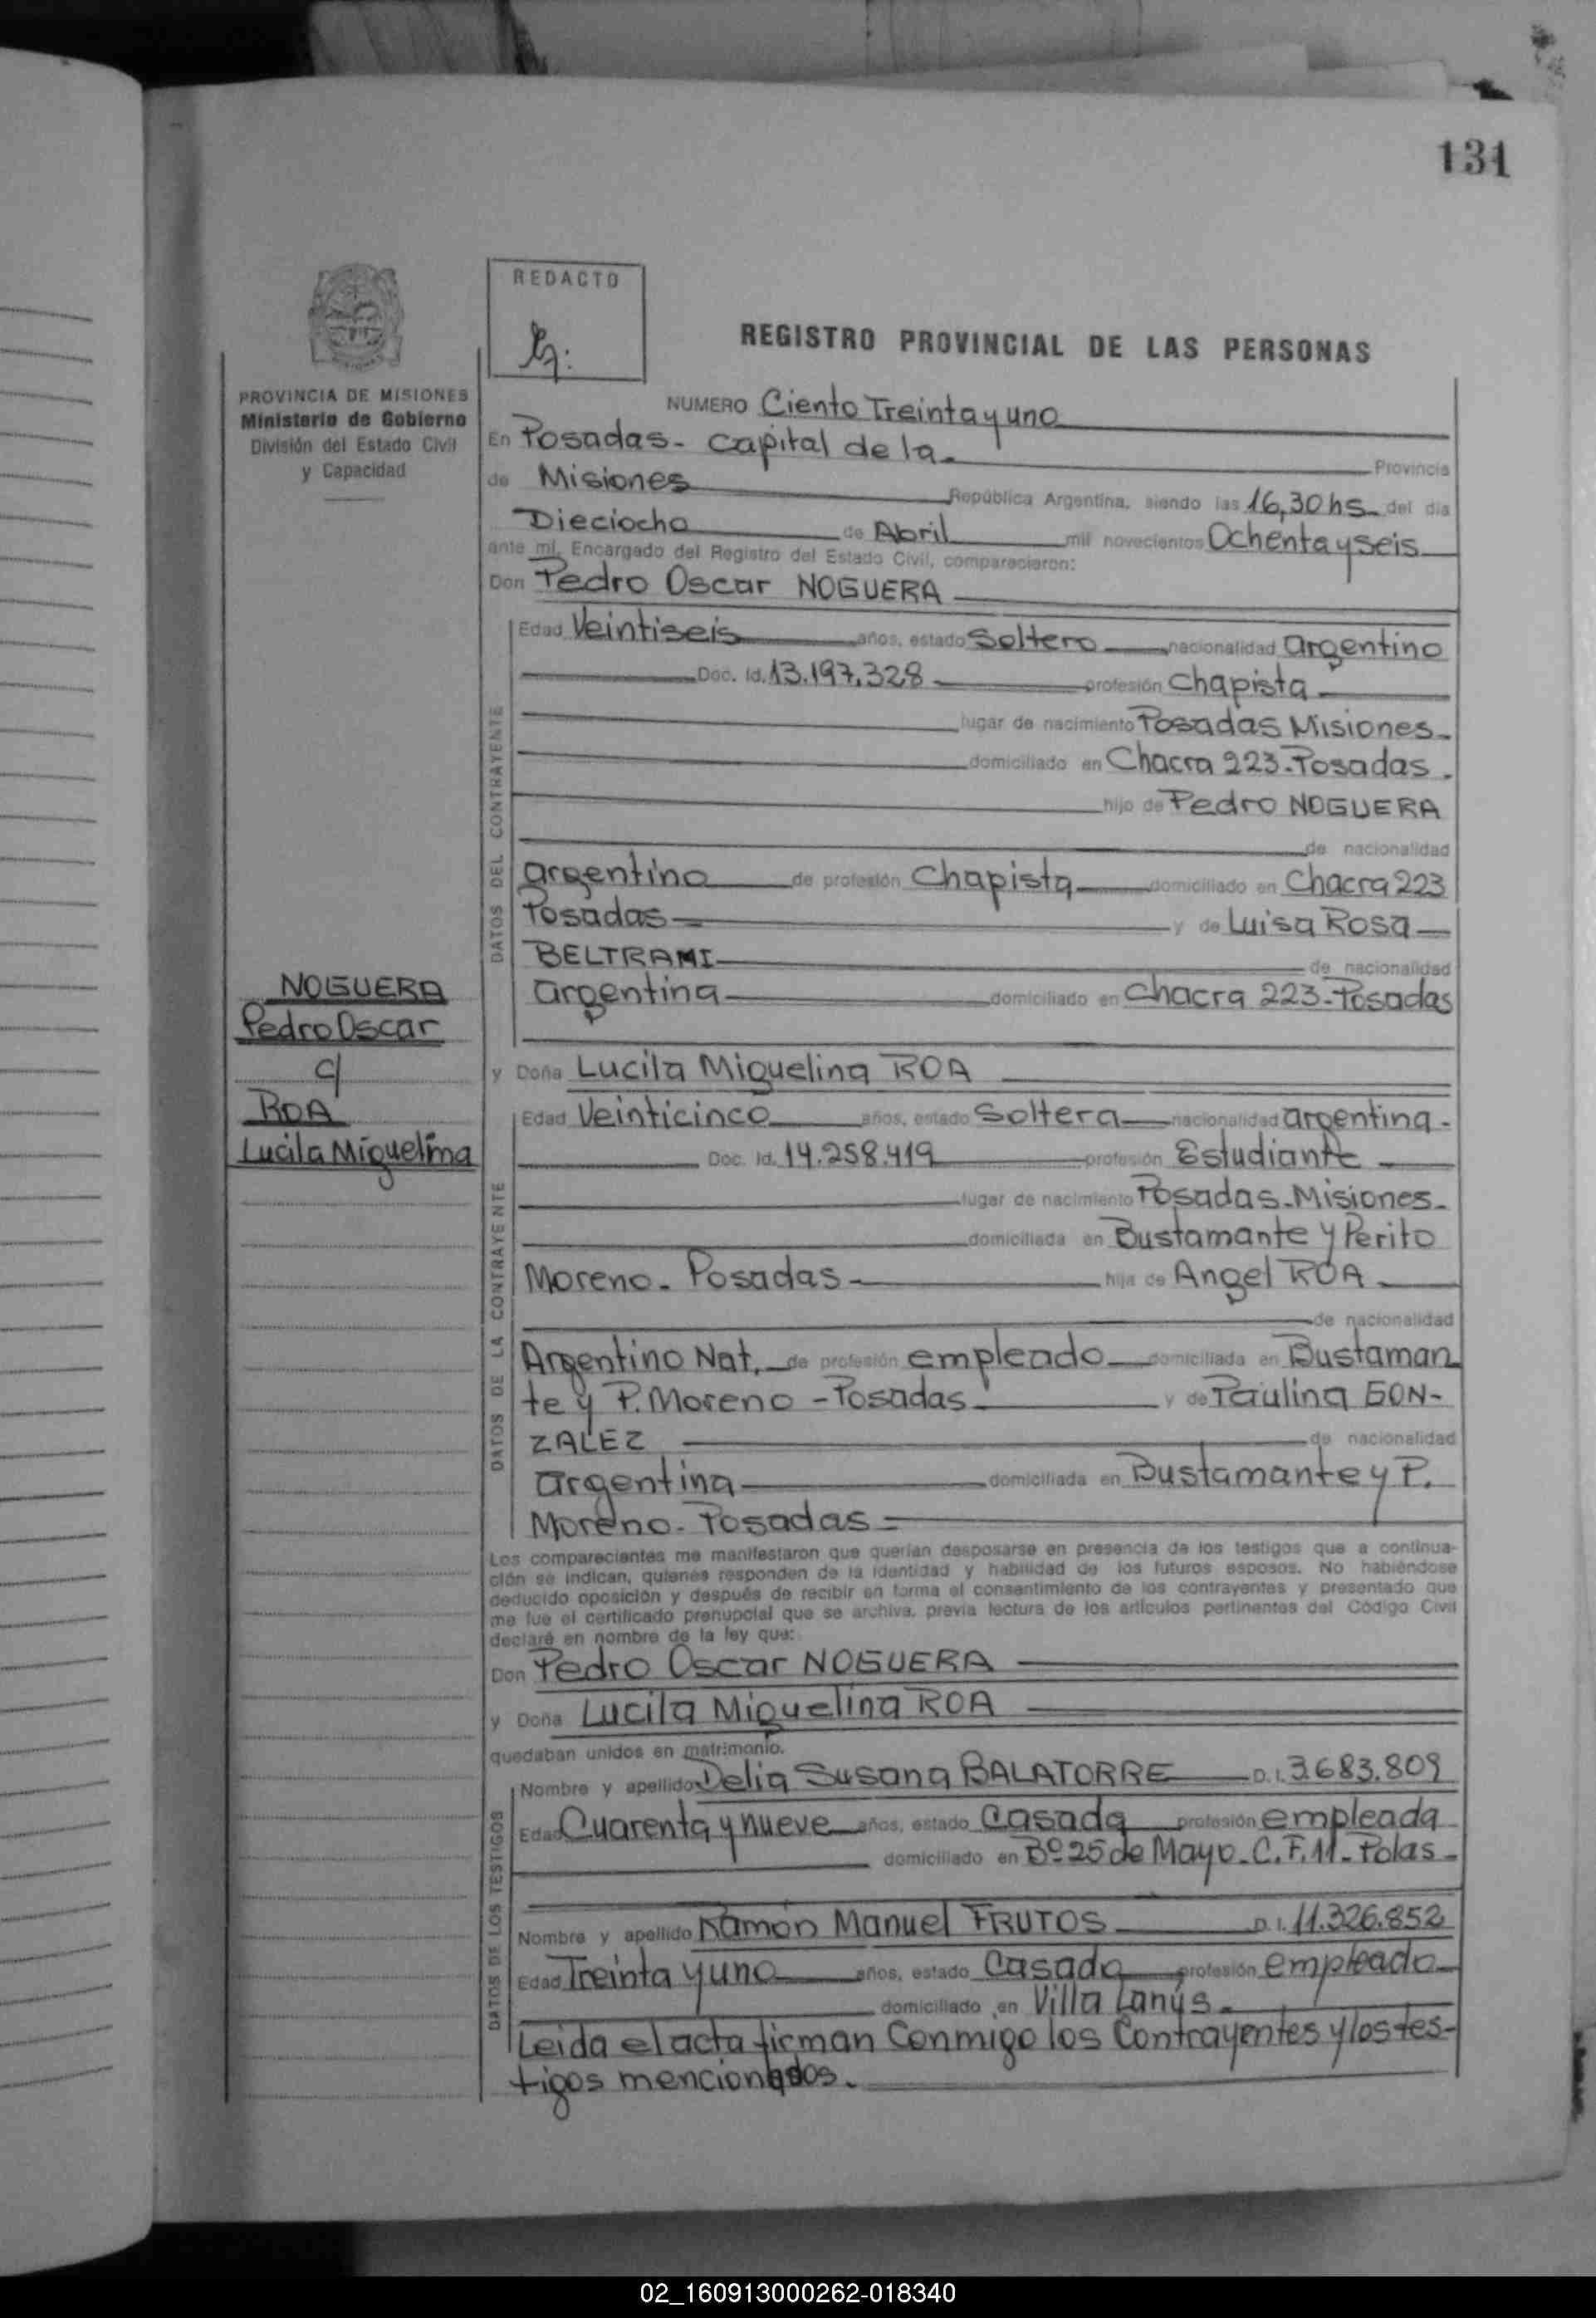 131
REDACTO
REGISTRO PROVINCIAL DE LAS PERSONAS
PROVINCIA DE MISIONES
Ministerio de Gobierno
División del Estado Civil
y Capacidad
NUMERO Ciento Treinta y uno
En Posadas - Capital de la Provincia
de Misiones República Argentina, siendo las 16,30 hs. del dia
Dieciocho de Abril mil novecientos Ochenta y seis
ante mi, Encargado del Registro del Estado Civil, comparecieron:
Don Pedro Oscar NOGUERA
DATOS DEL CONTRAYENTE
Edad Veintiseis años, estado Soltero nacionalidad argentino
Doc. Id. 13.197.328 profesión Chapista
lugar de nacimiento Posadas Misiones.
domiciliado en Chacra 223 - Posadas.
hijo de Pedro NOGUERA
de nacionalidad
argentino de profesión Chapista domiciliado en Chacra 223
Posadas y de Luisa Rosa
BELTRAMI de nacionalidad
argentina domiciliado en Chacra 223 - Posadas
NOGUERA
Pedro Oscar
c/
ROA
Lucila Miguelina
y Doña Lucila Miguelina ROA
DATOS DE LA CONTRAYENTE
Edad Veinticinco años, estado Soltera nacionalidad argentina.
Doc. Id. 14.258.419 profesión Estudiante
lugar de nacimiento Posadas - Misiones.
domiciliada en Bustamante y Perito
Moreno - Posadas hija de Angel ROA
de nacionalidad
Argentino Nat. de profesión empleado domiciliada en Bustaman
te y P. Moreno - Posadas y de Paulina GON-
ZALEZ de nacionalidad
argentina domiciliada en Bustamante y P.
Moreno - Posadas
Los comparecientes me manifestaron que querían desposarse en presencia de los testigos que a continua-
ción se indican, quienes responden de la identidad y habilidad de los futuros esposos. No habiéndose
deducido oposición y después de recibir en forma el consentimiento de los contrayentes y presentado que
me fue el certificado prenupcial que se archiva, previa lectura de los artículos pertinentes del Código Civil
declaré en nombre de la ley que:
Don Pedro Oscar NOGUERA
y Doña Lucila Miguelina ROA
quedaban unidos en matrimonio.
DATOS DE LOS TESTIGOS
Nombre y apellido Delia Susana BALATORRE D.I. 3.683.809
Edad Cuarenta y nueve años, estado Casada profesión empleada
domiciliado en Bº 25 de Mayo - C. F. 11 - Pdas -
Nombre y apellido Ramón Manuel FRUTOS D.I. 11.326.852
Edad Treinta y uno años, estado Casado profesión empleado
domiciliado en Villa Lanús.
Leida el acta firman Conmigo los Contrayentes y los tes-
tigos mencionados.
02_160913000262-018340